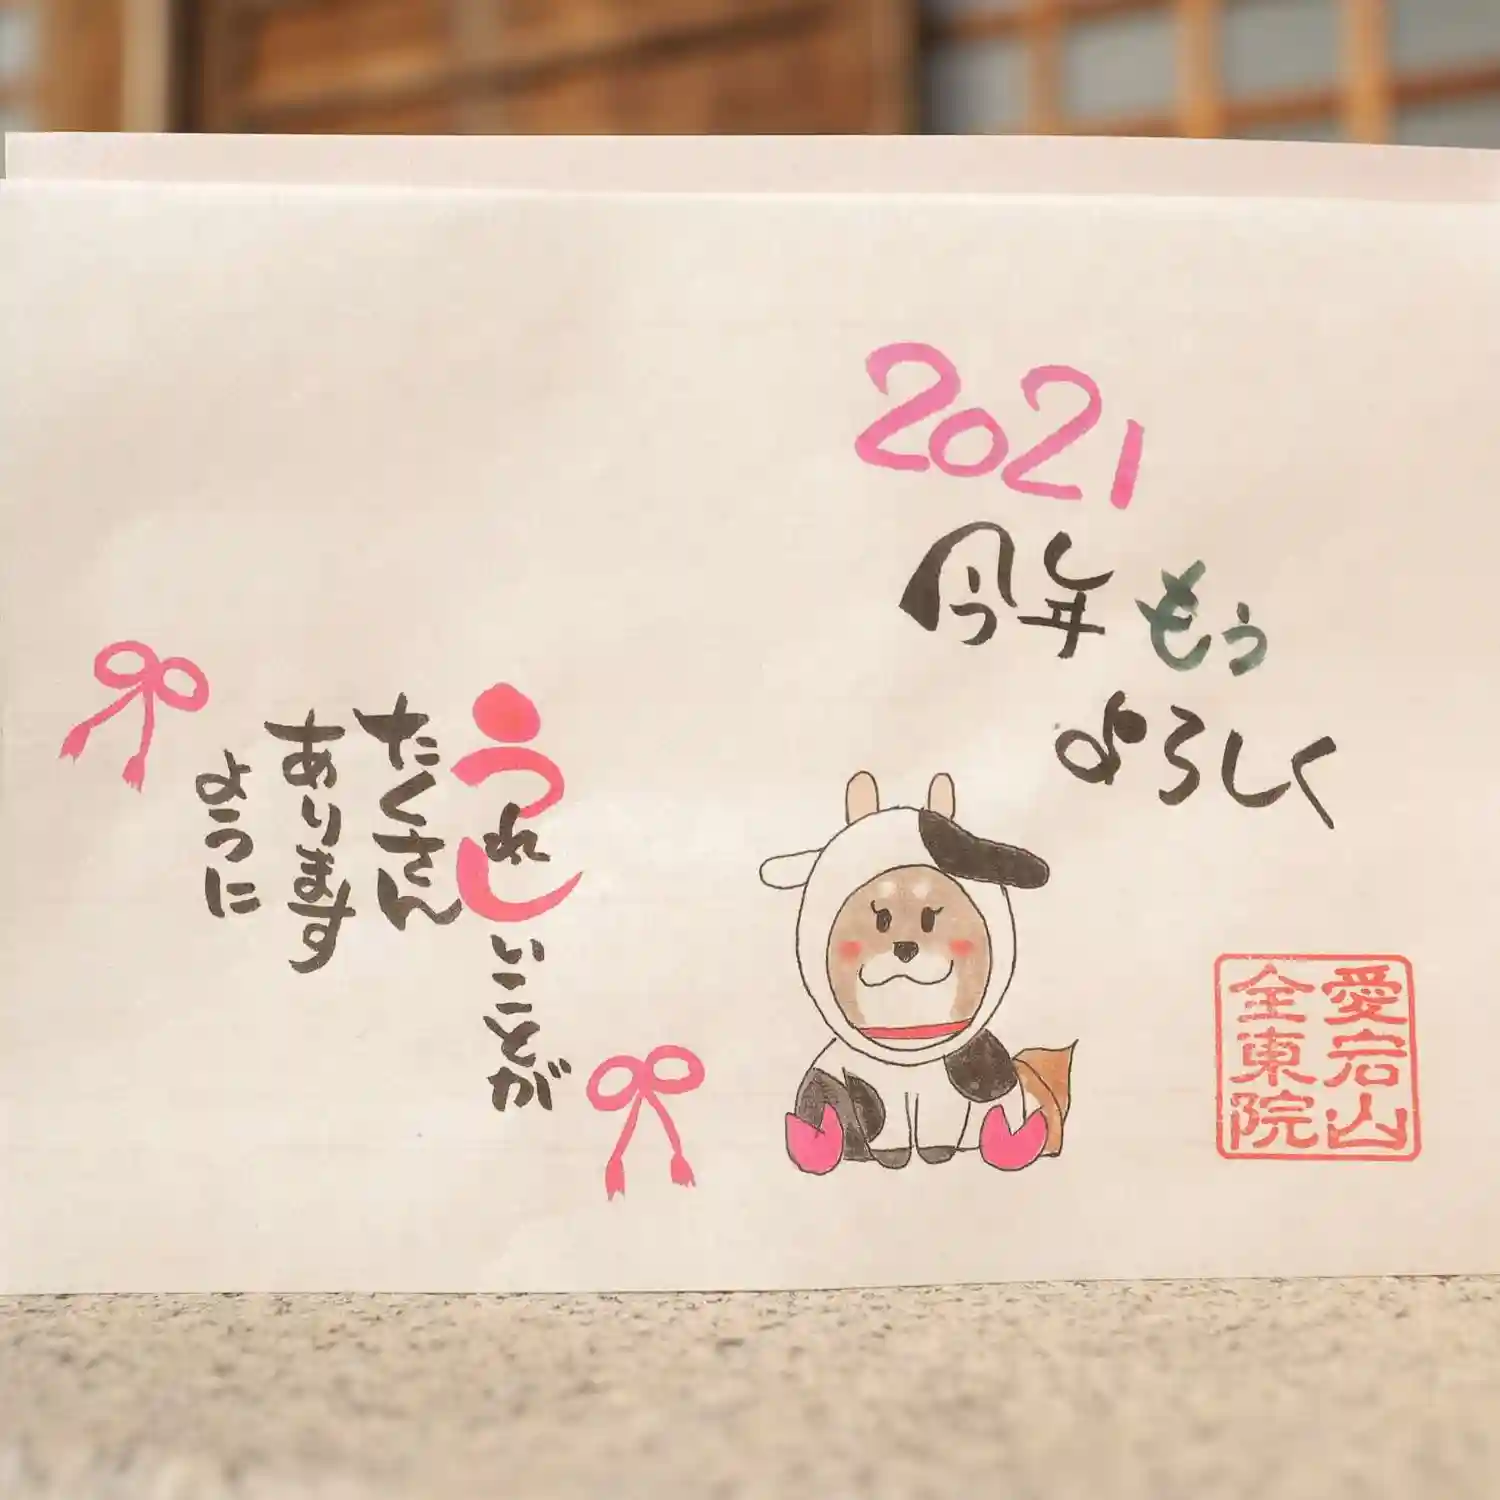 2021
今年もう
よろしく
うれしいことが
たくさん
あります
ように
愛宕山
全東院